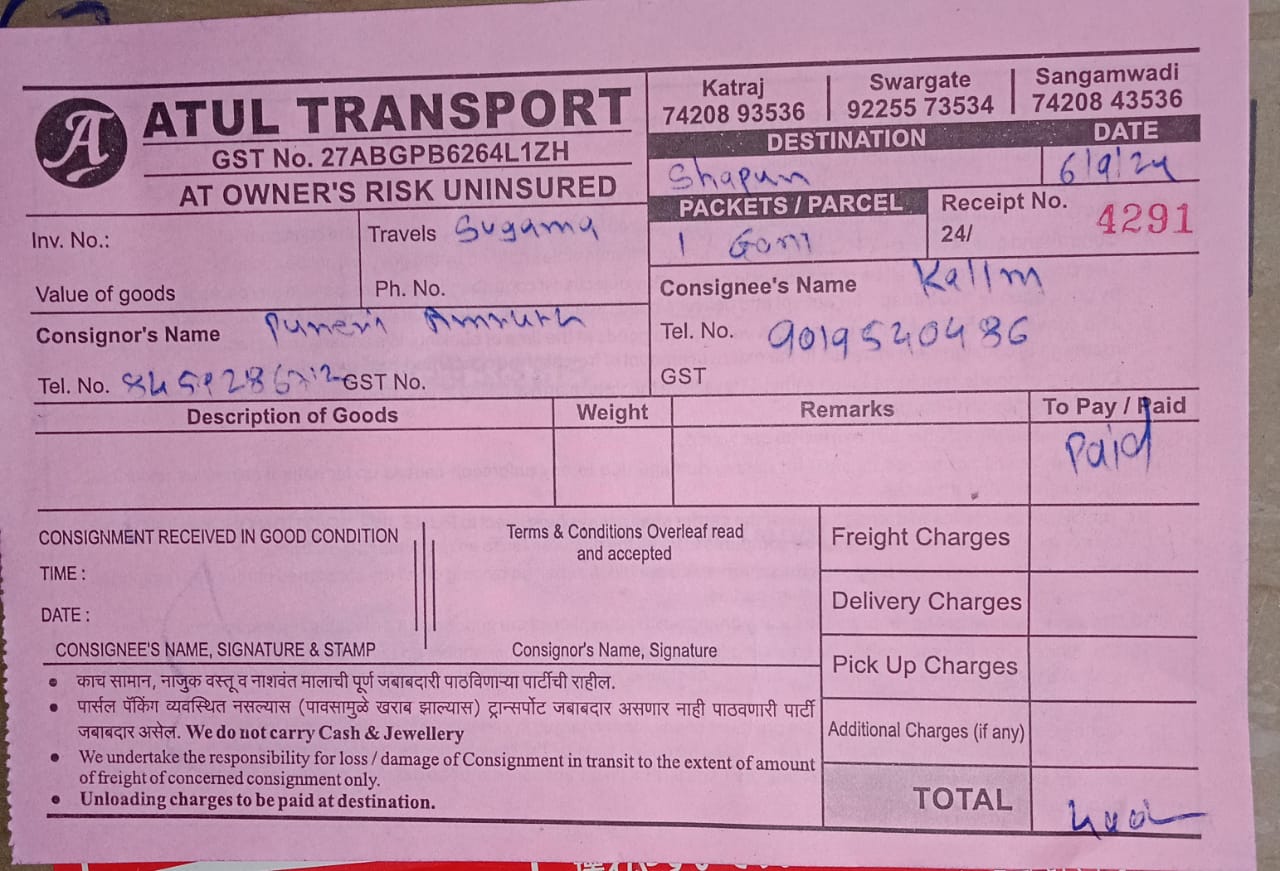 ATUL TRANSPORT
GST No. 27ABGPB6264L1ZH
AT OWNER'S RISK UNINSURED
Katraj
74208 93536
Swargate
92255 73534
Sangamwadi
74208 43536
DESTINATION
DATE
6/9/24
PACKETS / PARCEL
1
Receipt No.
24/
4291
Inv. No.:
Value of goods
Travels Sugama
Ph. No.
Consignor's Name
Tel. No.
GST No.
Consignee's Name
Tel. No. 9019540486
GST
Description of Goods
Weight
Remarks
To Pay / Paid
Paid
CONSIGNMENT RECEIVED IN GOOD CONDITION
TIME :
DATE :
CONSIGNEE'S NAME, SIGNATURE & STAMP
Terms & Conditions Overleaf read
and accepted
Consignor's Name, Signature
Freight Charges
Delivery Charges
Pick Up Charges
Additional Charges (if any)
TOTAL
• काच सामान, नाजुक वस्तू व नाशवंत मालाची पूर्ण जबाबदारी पाठविणाऱ्या पार्टीची राहील.
• पार्सल पॅकिंग व्यवस्थित नसल्यास (पावसामुळे खराब झाल्यास) ट्रान्सपोर्ट जबाबदार असणार नाही पाठवणारी पार्टी
जबाबदार असेल. We do not carry Cash & Jewellery
• We undertake the responsibility for loss / damage of Consignment in transit to the extent of amount
of freight of concerned consignment only.
• Unloading charges to be paid at destination.